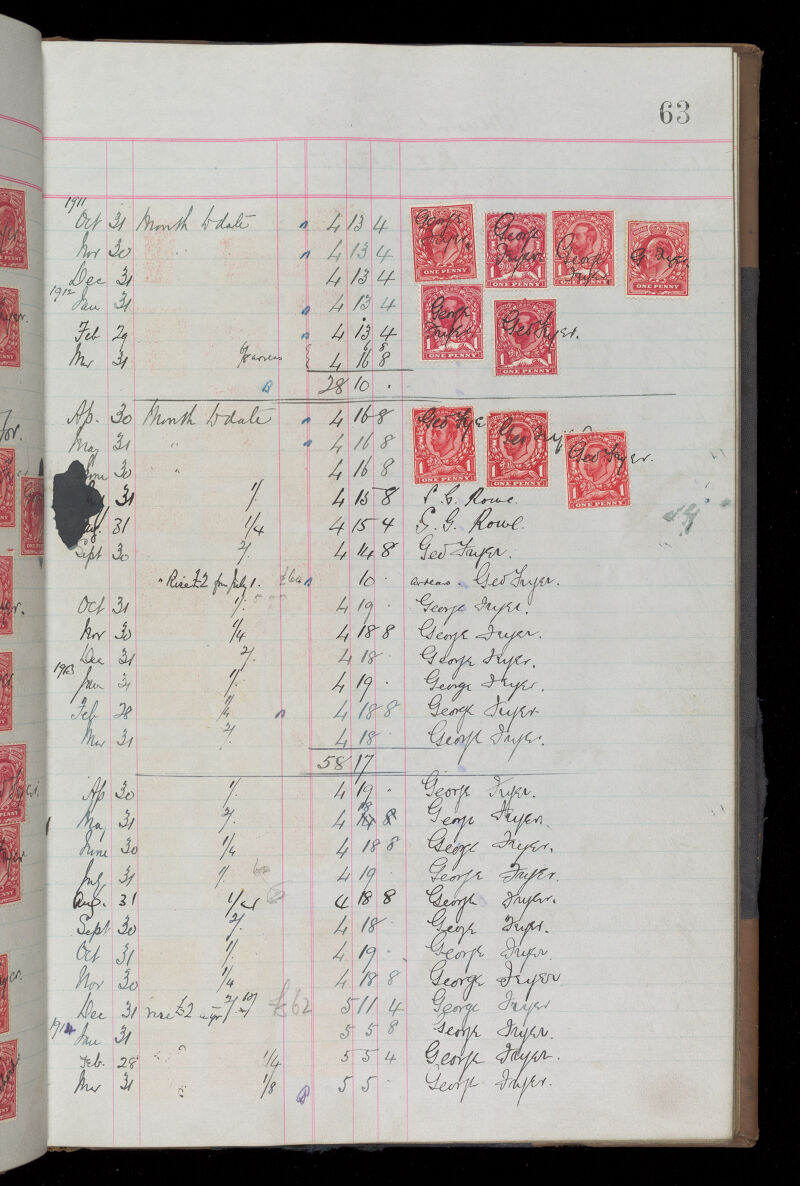 63
1911
Oct 31 Month to date 4 13 4 George Fryer.
Nov 30 " " 4 13 4 George Fryer
Dec 31 4 13 4 George Fryer
G. Fryer.
ONE PENNY
1 ONE PENNY 1
1 ONE PENNY 1
ONE PENNY
1912
Jan 31 4 13 4
Feb 29 4 13 4 George Fryer
Geo Fryer.
1 ONE PENNY 1
1 ONE PENNY 1
Mar 31 arrears 4 16 8
28 10 .
Ap. 30 Month to date 4 16 8 Geo Frye
Geo Fryer
Geo Fryer.
1 ONE PENNY 1
1 ONE PENNY 1
1 ONE PENNY 1
May 31 " 4 16 8
June 30 " 4 16 8
31 1/. 4 15 8 Rowe.
31 1/4 4 15 4 G. Rowe.
Sept 30 2/. 4 14 8 Geo Fryer.
" Rise £2 from July 1. £60 10 . arrears. Geo Fryer.
Oct 31 1/. 4 19 . George Fryer.
Nov 30 1/4 4 18 8 George Fryer.
Dec 31 2/. 4 18 . George Fryer.
1913
Jan 31 1/. 4 19 . George Fryer.
Feb 28 1/4 4 18 8 George Fryer
Mar 31 2/. 4 18 . George Fryer.
58 17
Ap 30 1/. 4 19 . George Fryer.
May 31 2/. 4 18 George Fryer.
June 30 1/4 4 18 8 George Fryer.
July 31 1/. 4 19 . George Fryer.
Aug. 31 1/4 4 18 8 George Fryer.
Sept 30 2/. 4 18 . George Fryer.
Oct 31 1/. 4 19 . George Fryer
Nov 30 1/4 4 18 8 George Fryer
Dec 31 rise £2 a yr 2/. £62 5 11 4 George Fryer
1914
Jan 31 5 5 8 George Fryer.
Feb. 28 " " 1/4 5 5 4 George Fryer.
Mar 31 " 1/8 5 5 . George Fryer.